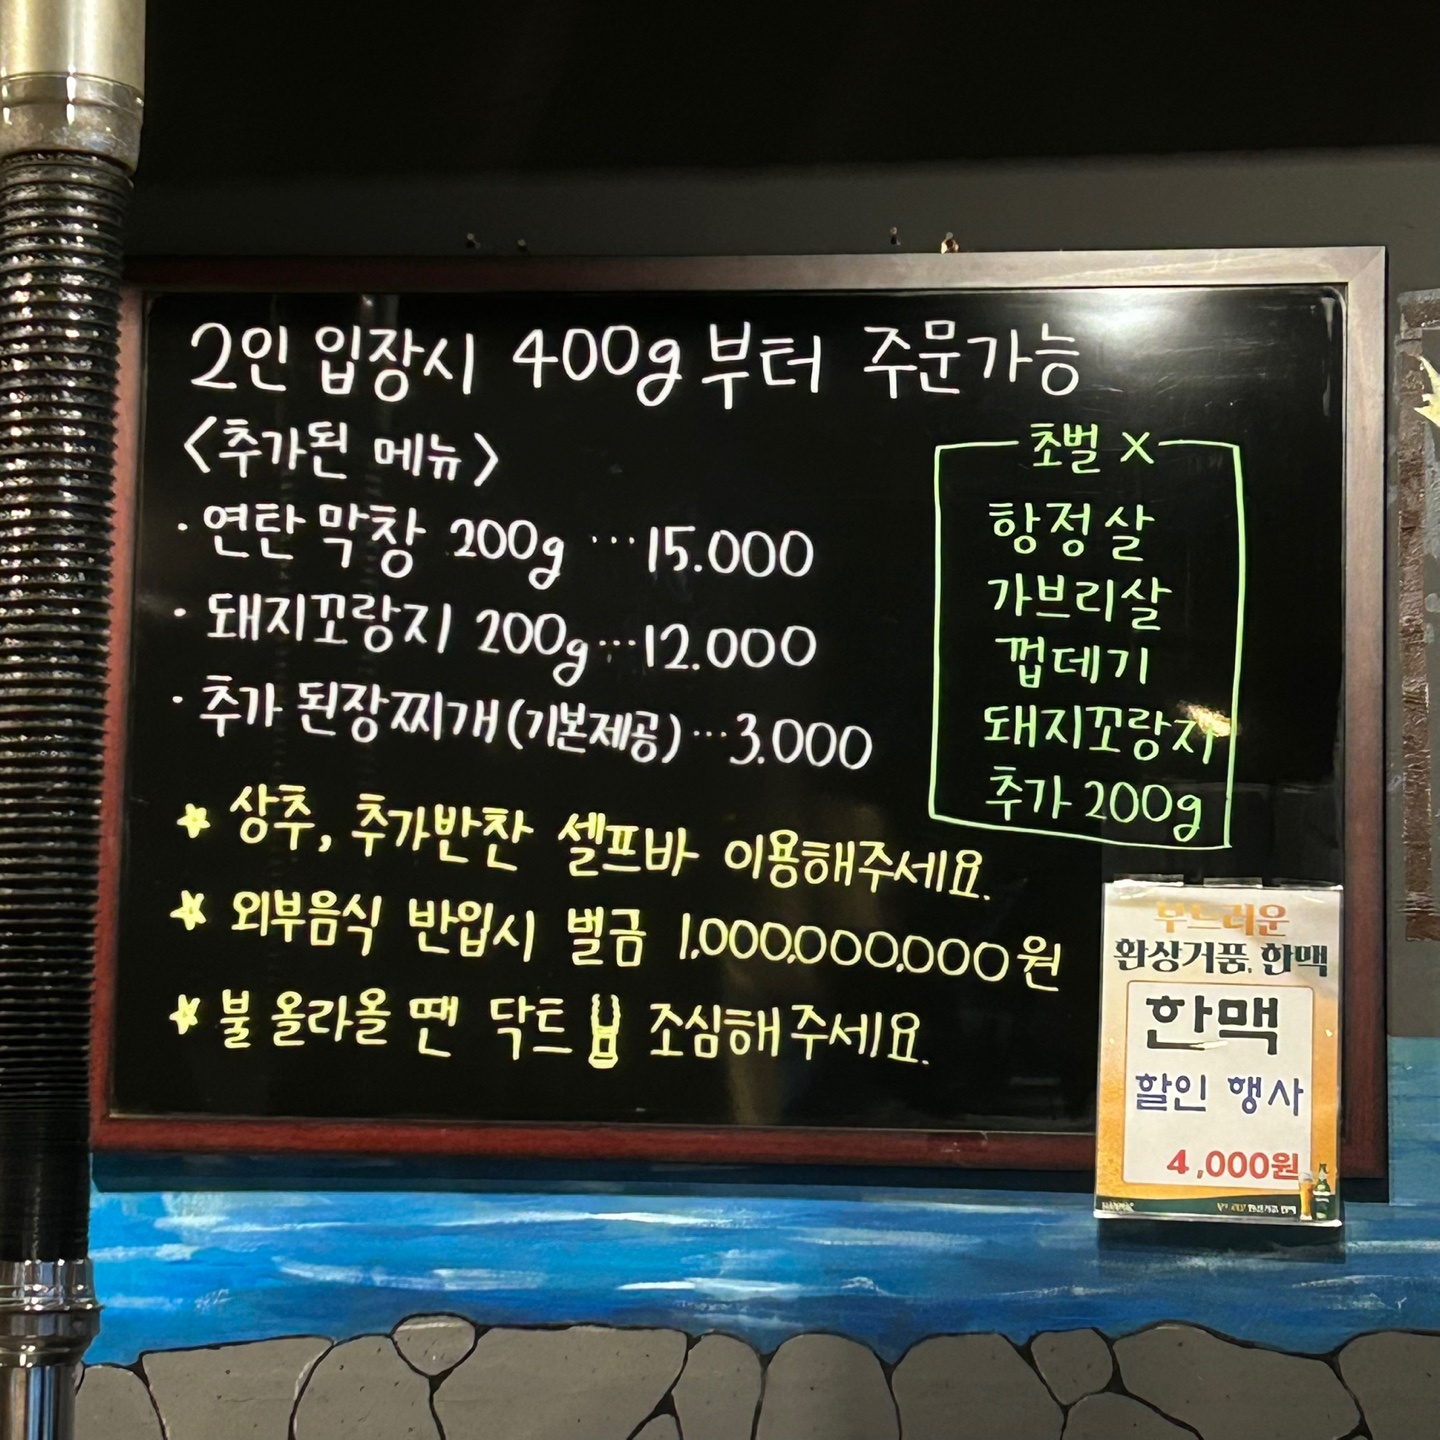 2인 입장시 400g부터 주문가능
<추가된 메뉴>
· 연탄 막창 200g ...15.000
· 돼지꼬랑지 200g...12.000
· 추가 된장찌개(기본제공)...3.000
★ 상추, 추가반찬 셀프바 이용해주세요.
★ 외부음식 반입시 벌금 1,000,000,000원
★ 불 올라올 땐 닥트 조심해주세요.
초벌 X
항정살
가브리살
껍데기
돼지꼬랑지
추가 200g
부드러운
환상거품, 한맥
한맥
할인 행사
4,000원